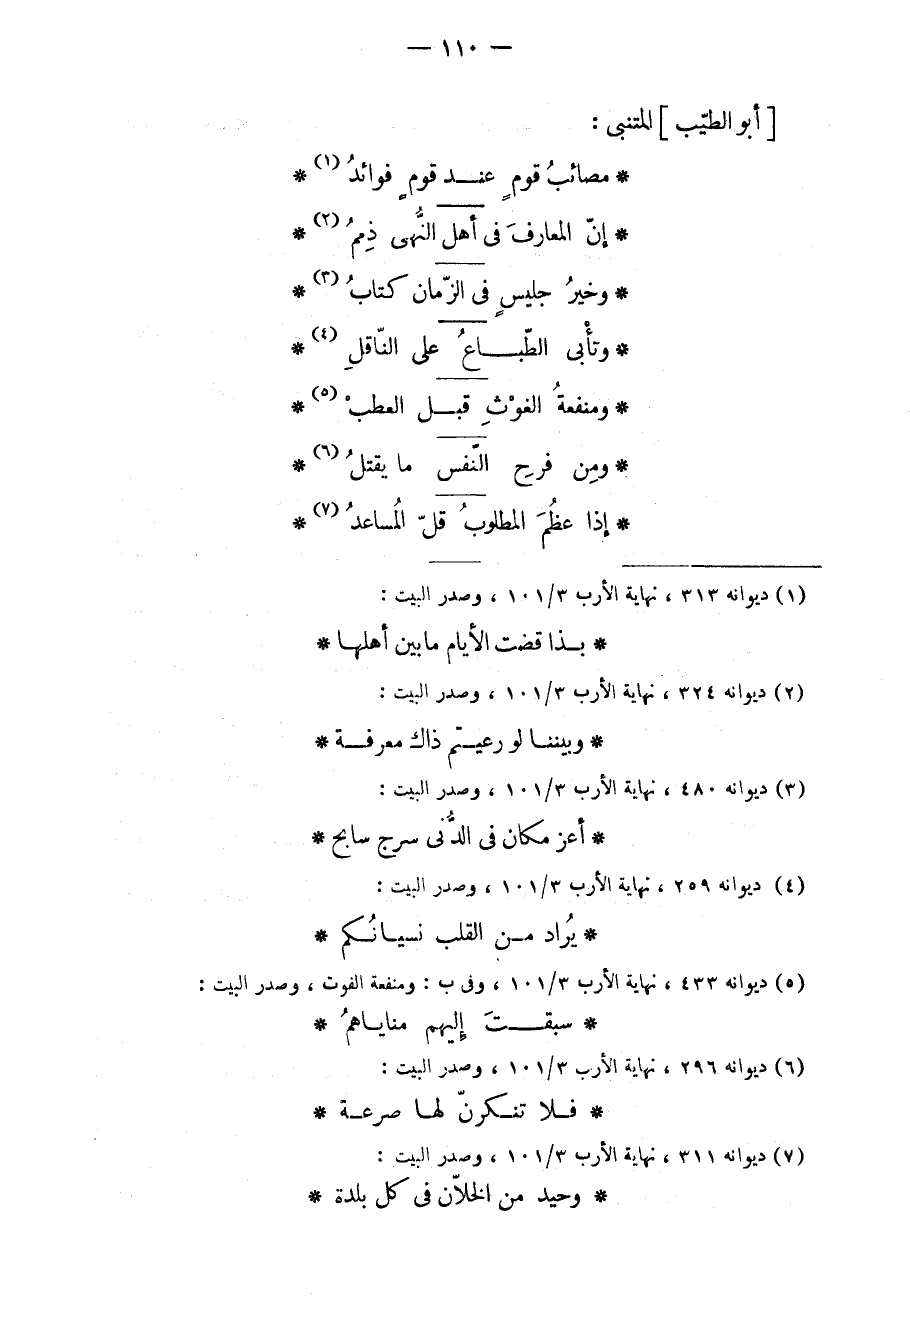 — ١١٠ —
[ أبو الطيّب ] المتنبى :
* مصائبُ قومٍ عنـــد قومٍ فوائدُ (١) *
* إنّ المعارفَ فى أهل النُّهى ذِممُ (٢) *
* وخيرُ جليسٍ فى الزّمان كتابُ (٣) *
* وتأْبى الطّبـــاعُ على النّاقلِ (٤) *
* ومنفعةُ الغوْثِ قبـــل العطبْ (٥) *
* ومِن فرحِ النّفس ما يقتلُ (٦) *
* إذا عظُمَ المطلوبُ قلّ المُساعدُ (٧) *
(١) ديوانه ٣١٣ ، نهاية الأرب ١٠١/٣ ، وصدر البيت :
* بـذا قضت الأيام مابين أهلهـا *
(٢) ديوانه ٣٢٤ ، نهاية الأرب ١٠١/٣ ، وصدر البيت :
* وبيننـا لو رعيـتم ذاك معرفـة *
(٣) ديوانه ٤٨٠ ، نهاية الأرب ١٠١/٣ ، وصدر البيت :
* أعز مكان فى الدُّنى سرج سابح *
(٤) ديوانه ٢٥٩ ، نهاية الأرب ١٠١/٣ ، وصدر البيت :
* يُراد مـن القلب نسيـانُـكم *
(٥) ديوانه ٤٣٣ ، نهاية الأرب ١٠١/٣ ، وفى ب : ومنفعة الفوت ، وصدر البيت :
* سبقـــتَ إليهم منايـاهمُ *
(٦) ديوانه ٢٩٦ ، نهاية الأرب ١٠١/٣ ، وصدر البيت :
* فـلا تنـكرنّ لهـا صرعـة *
(٧) ديوانه ٣١١ ، نهاية الأرب ١٠١/٣ ، وصدر البيت :
* وحيد من الخلاّن فى كل بلدة *